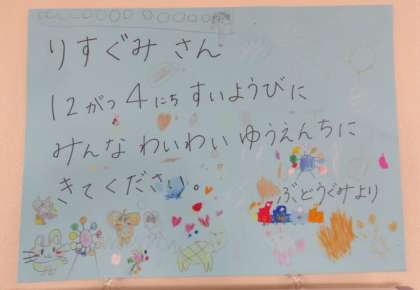 りすぐみ さん
12がつ 4にち すいようびに
みんな わいわい ゆうえんちに
きてください。
ぶどうぐみより